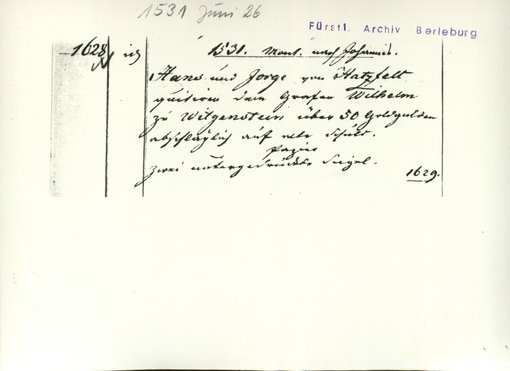 1531 Juni 26
Fürstl. Archiv Berleburg
1628
1531. Mont. nach Johannis.
Hans und Jorge von Hatzfelt
quitiren dem Grafen Wilhelm
zu Witgenstein über 50 Goldgulden
abschläglich auf alte Schuld.
Papier
zwei untergedrückte Siegel.
1629.